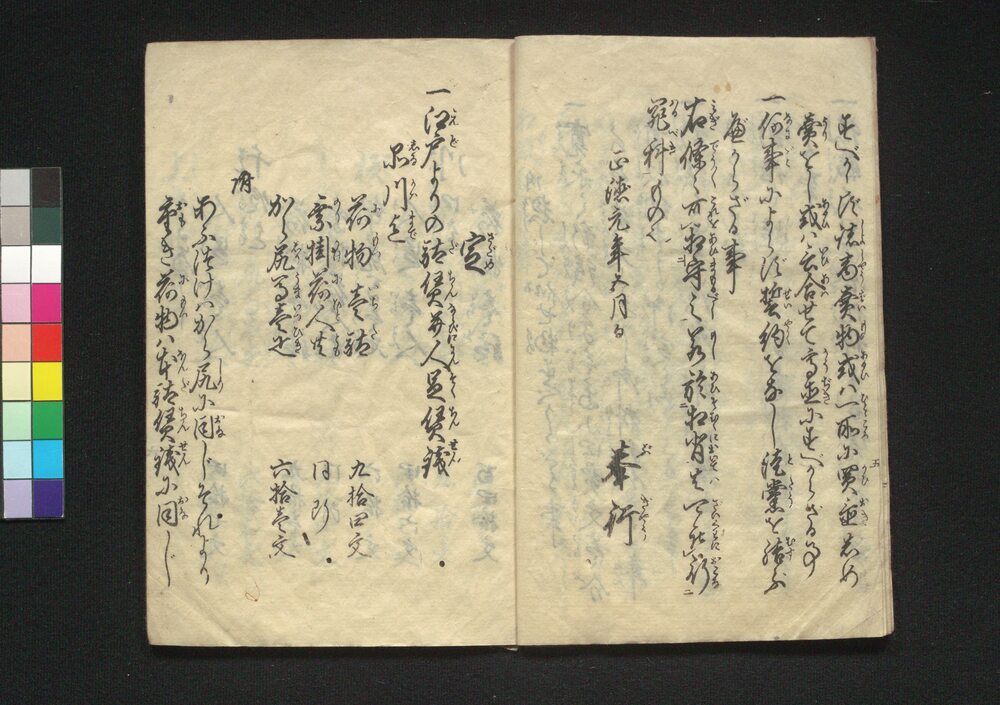 すべからず諸商賣物或ハ一所に買置しめ
賣をし或ハ云合せて高直にすべからざる事
一何事によらず誓約をなし徒黨を結ふ
べからざる事
右條々可相守之若於相背者可被行
罪科もの也
正徳元年五月日
奉行
定
一江戸よりの駄賃并人足賃銭
品川迄
荷物壱駄 九拾四文
乗掛荷人共 同断
から尻馬壱疋 六拾壱文
附
あふつけハから尻に同じそれより
重き荷物ハ本駄賃銭に同じ